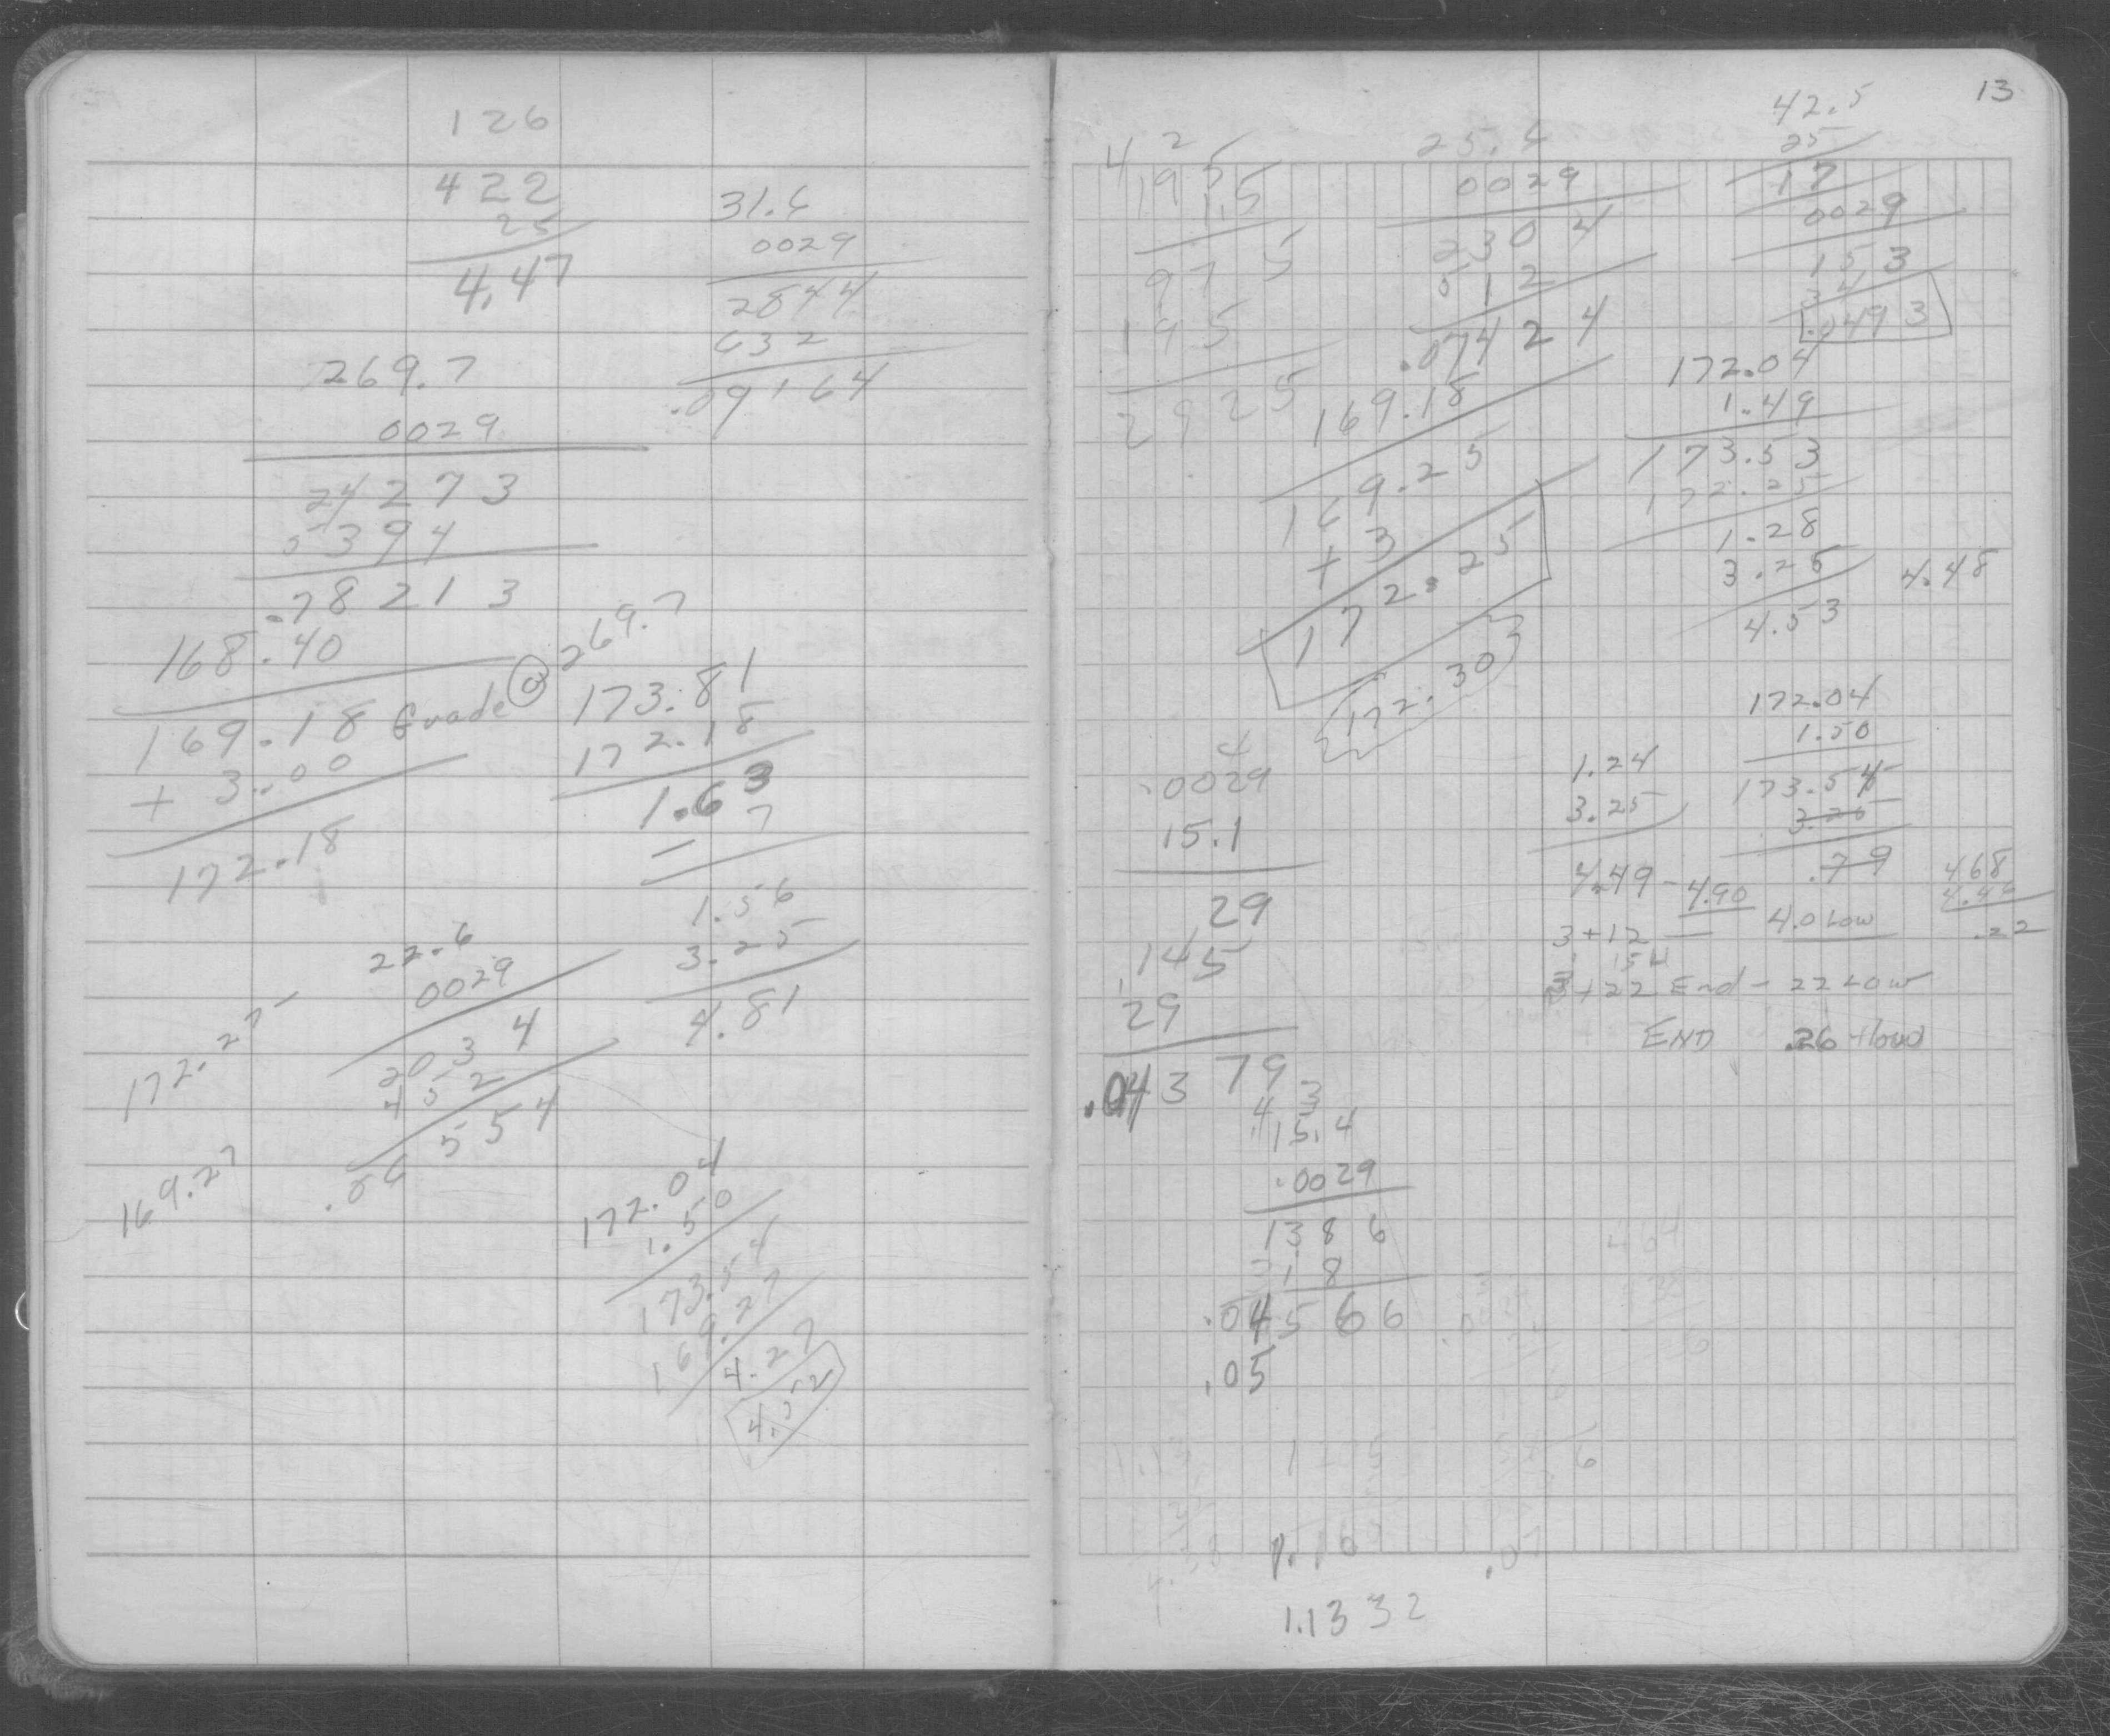 126
422
25
4.47
31.6
0029
2844
632
.09164
269.7
0029
24273
5394
.78213
168.40
169.18 Grade @ 269.7
+ 3.00
172.18
173.81
172.18
1.63
7
1.56
3.25
4.81
22.6
0029
2034
452
.06554
172.27
169.27
172.04
1.50
173.54
169.27
4.27
4.52
13
4 2
195
1.5
975
195
2925
25.6
0029
2304
512
.07424
169.18
169.25
+ 3
172.25
172.30
42.5
25
17
0029
153
34
.0493
172.04
1.49
173.53
172.25
1.28
3.25
4.53
4.48
.0029
15.1
29
145
29
.04379
15.4
.0029
1386
318
.04566
.05
172.04
1.50
173.54
3.25
.79
1.24
3.25
4.49 - 4.90
3+12 — 4.0 Low
468
4.46
.22
154
3+22 End - 22 Low
END .26
464
1.16
.07
1.1332